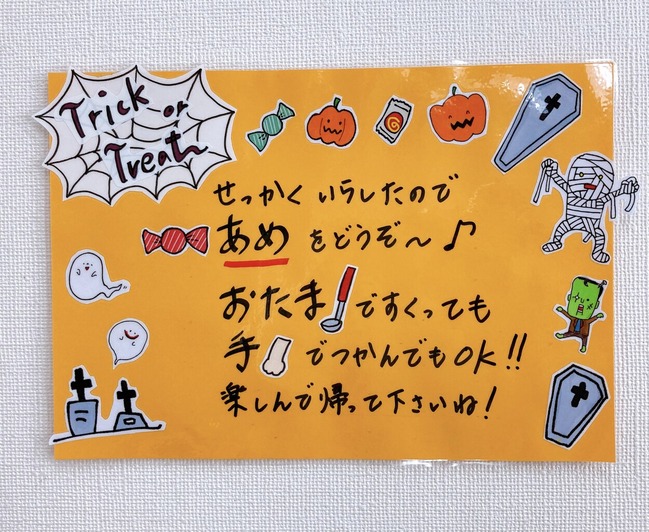 Trick or
Treat
せっかく いらしたので
あめ をどうぞ〜♪
おたま ですくっても
手 でつかんでもOK!!
楽しんで帰って下さいね!